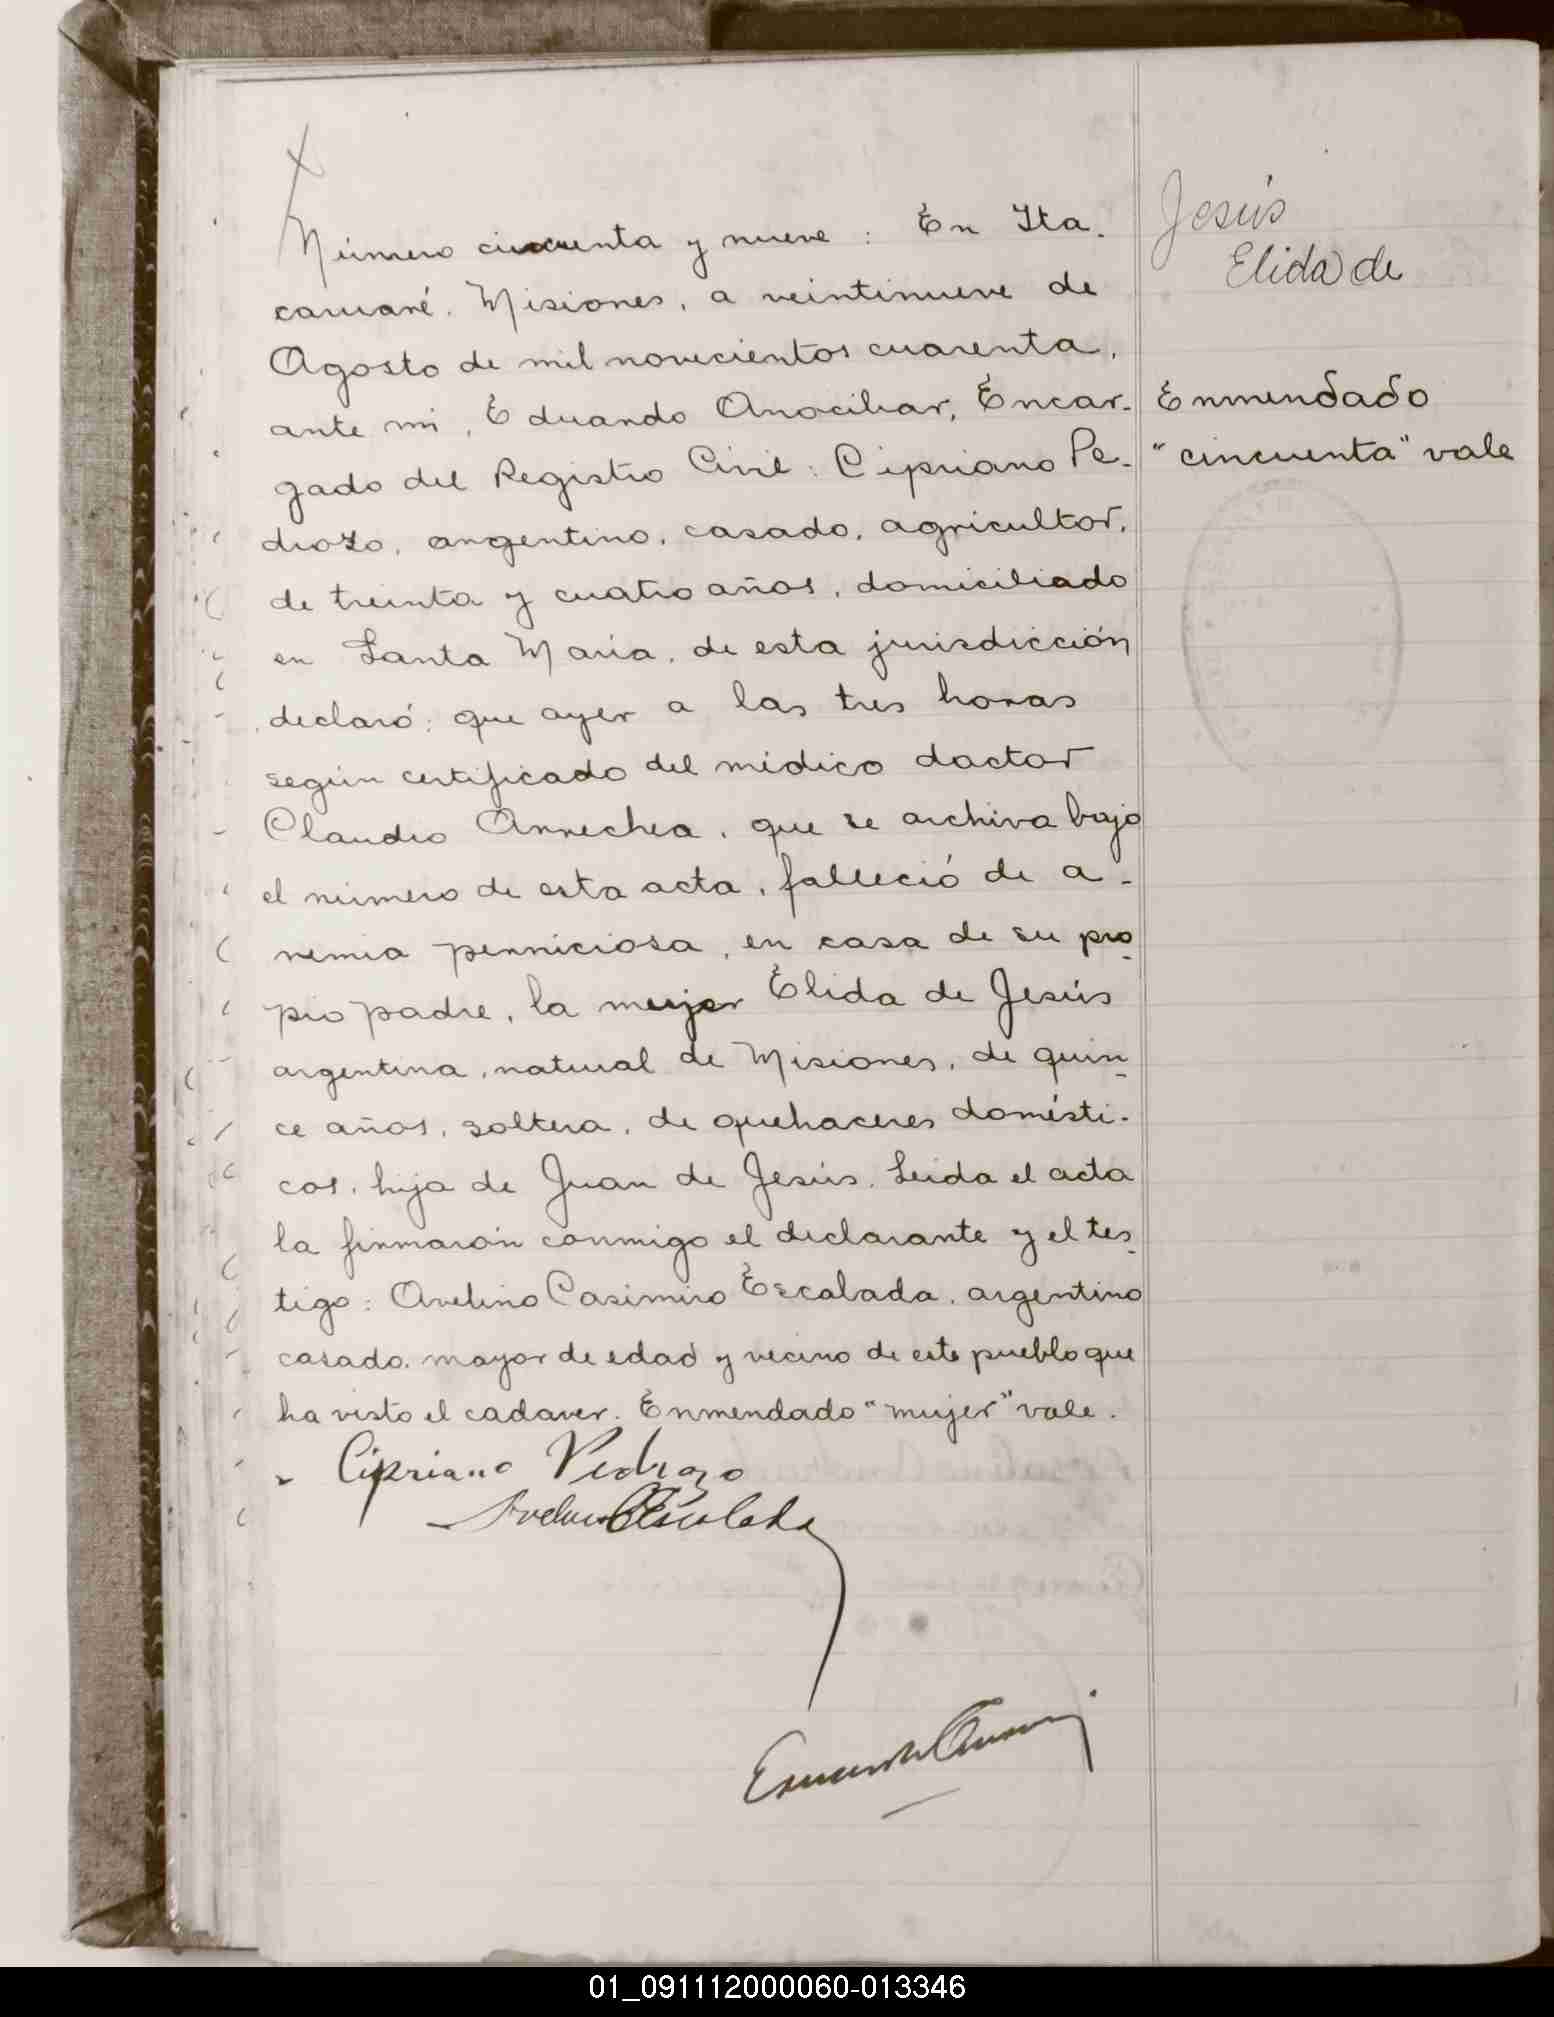 Número cincuenta y nueve : En Ita-
caruaré. Misiones, a veintinueve de
Agosto de mil novecientos cuarenta,
ante mi, Eduardo Anocibar, Encar-
gado del Registro Civil: Cipriano Pe-
drozo, argentino, casado, agricultor,
de treinta y cuatro años, domiciliado
en Santa María, de esta jurisdicción
declaró: que ayer a las tres horas
según certificado del médico doctor
Claudio Arrechea, que se archiva bajo
el número de esta acta, falleció de a-
nemia perniciosa, en casa de su pro-
pio padre, la mujer Elida de Jesús
argentina, natural de Misiones, de quin-
ce años, soltera, de quehaceres domésti-
cos, hija de Juan de Jesús. Leida el acta
la firmaron conmigo el declarante y el tes-
tigo: Avelino Casimiro Escalada, argentino
casado, mayor de edad y vecino de este pueblo que
ha visto el cadaver. Enmendado "mujer" vale.
Cipriano Pedrozo
Avelino C Escalada
Jesús
Elida de
Enmendado
"cincuenta" vale
01_091112000060-013346